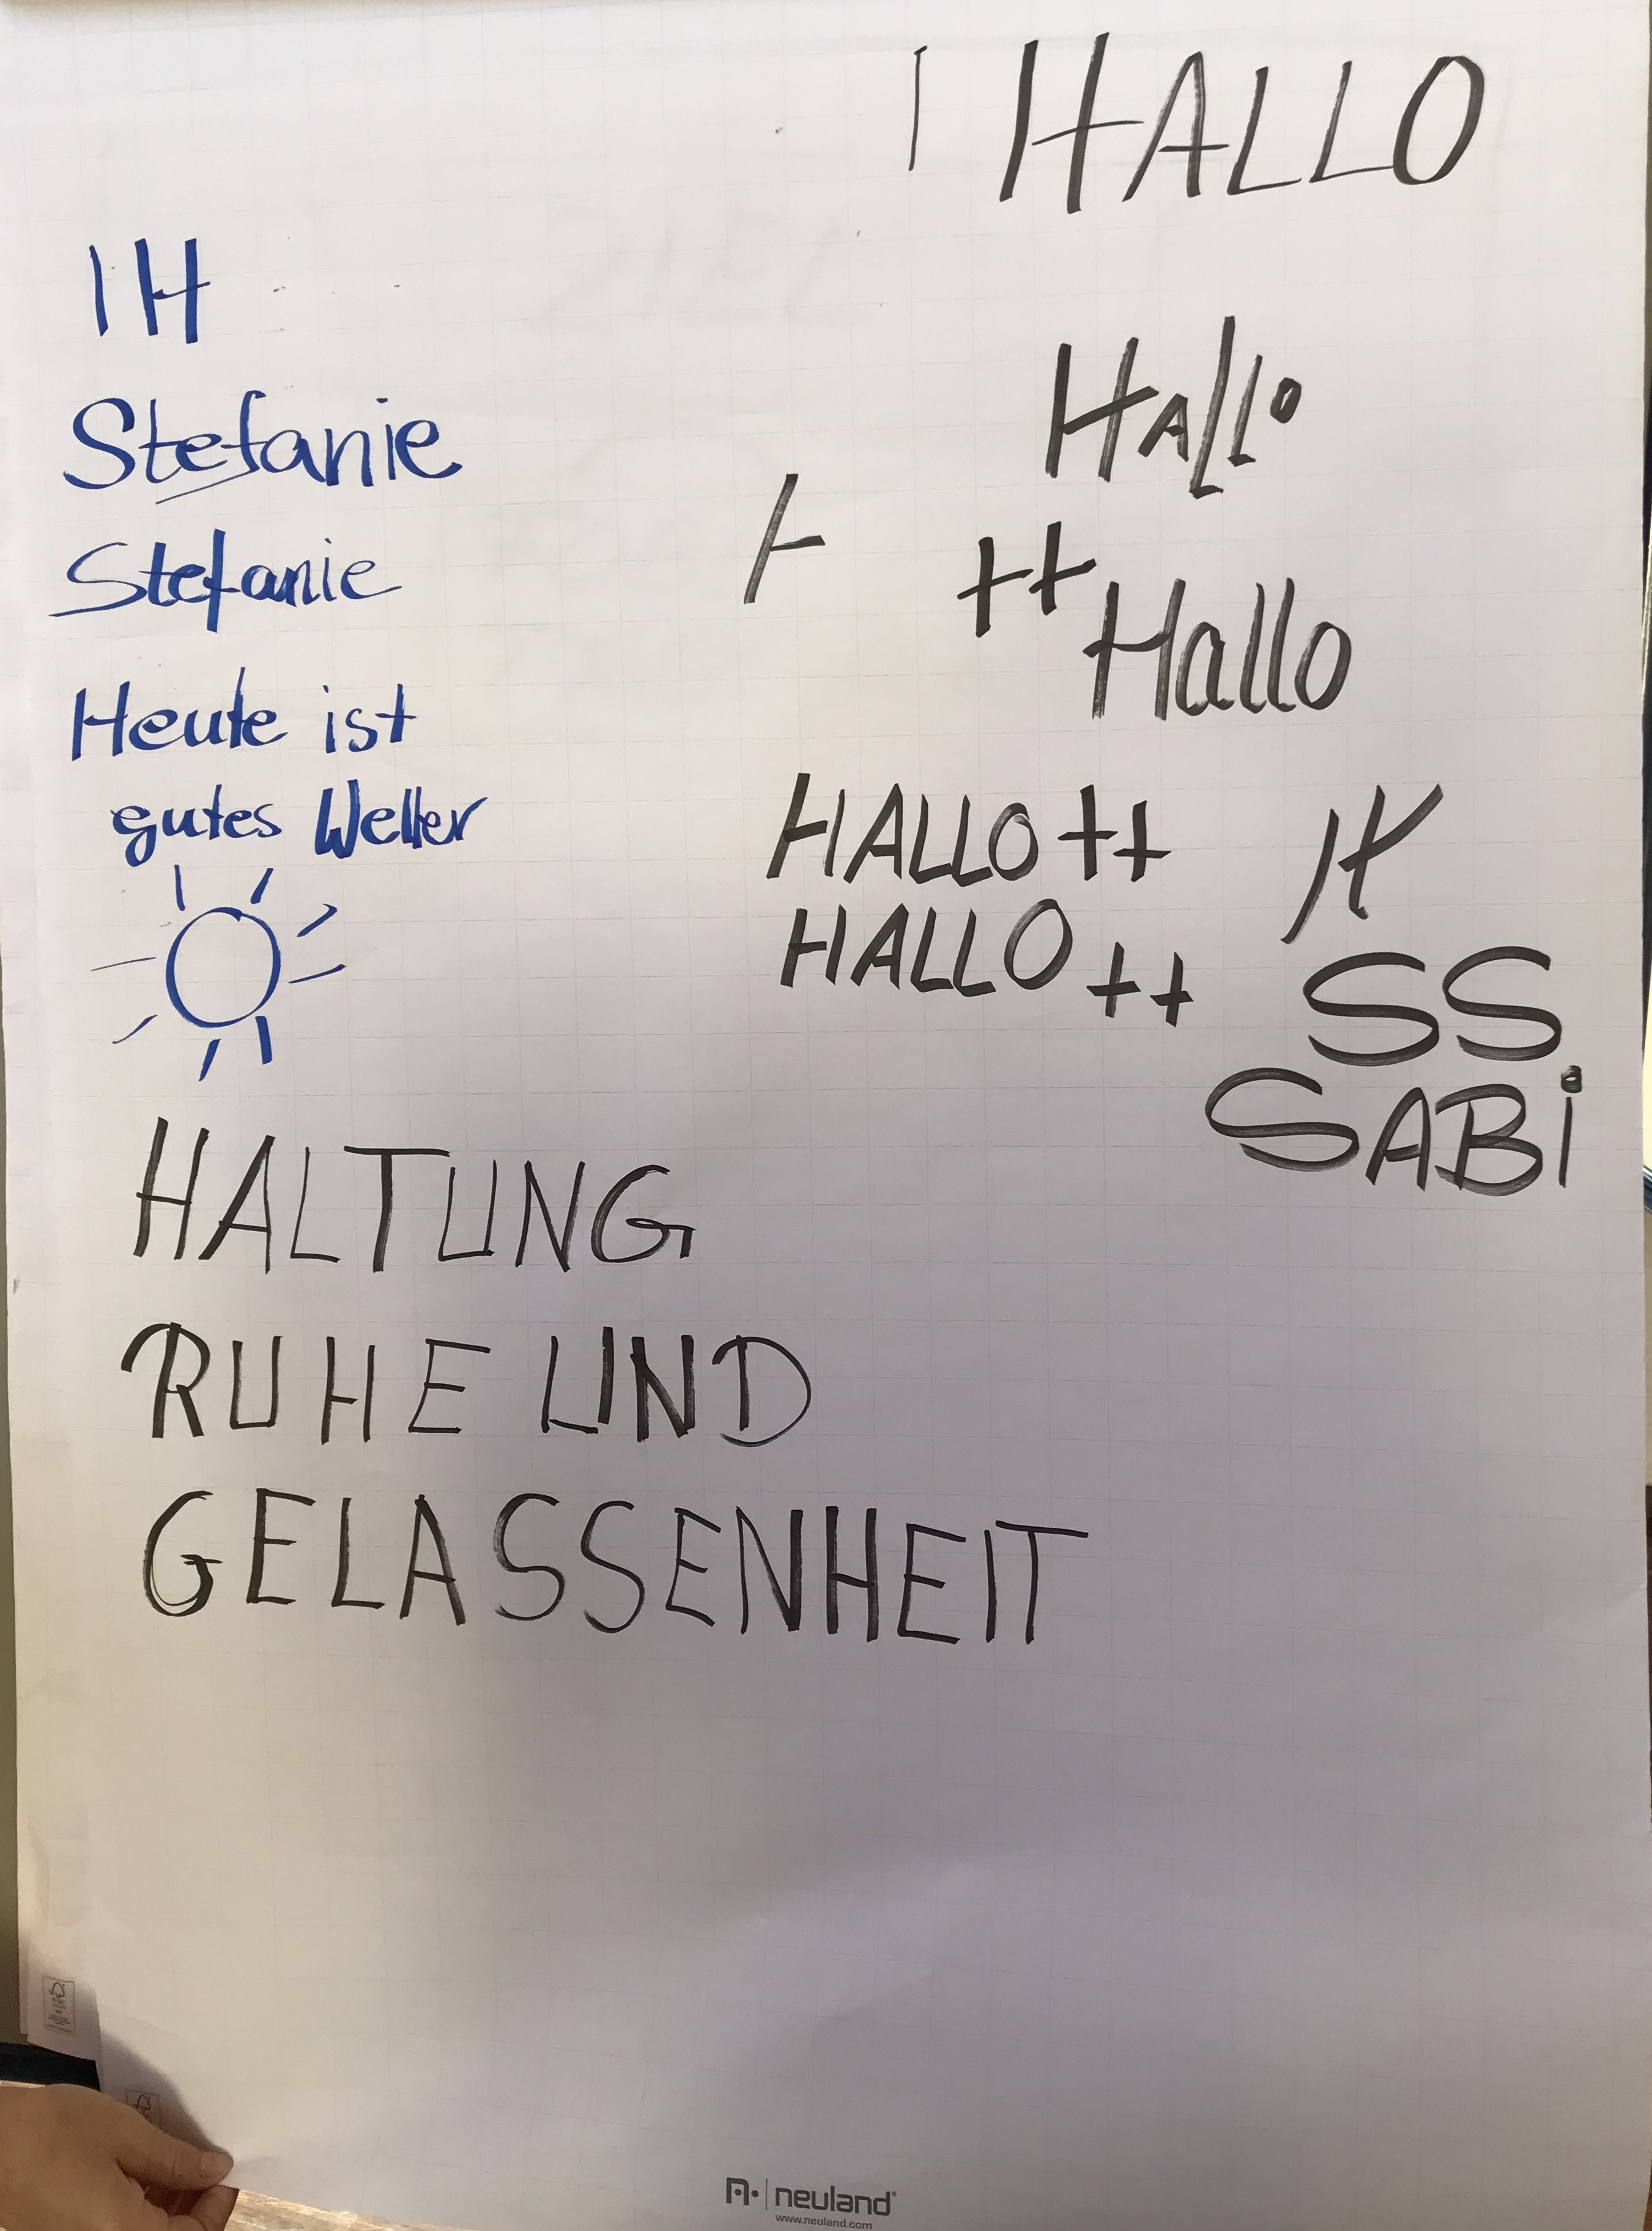 I HALLO
IH
Stefanie
Stefanie
Heute ist
gutes Wetter
HALLO
H
++
Hallo
HALLO ++
HALLO ++
H
SS
SABi
HALTUNG
RUHE UND
GELASSENHEIT
neuland
www.neuland.com